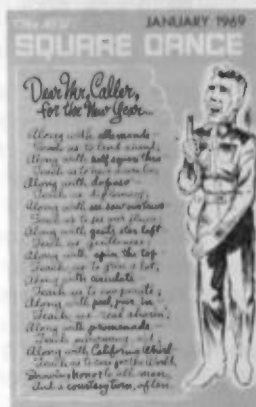 JANUARY 1969
SQUARE DANCE
Dear Mr. Caller,
for the New Year...
Along with allemande
Teach us to lend a hand,
Along with half square thru
Teach us to
Along with dopaso
Teach us diplomacy,
Along with see saw
Teach us to see our
Along with gents star left
Teach us gentleness,
Along with spin the top
Teach us to grin a lot,
Along with circulate
Teach us to
Along with peel, pair in
Teach us real sharin',
Along with promenade
Teach
Along with California Whirl
Teach us to care for the World,
Showing honor to all men
And a courtesy turn, often